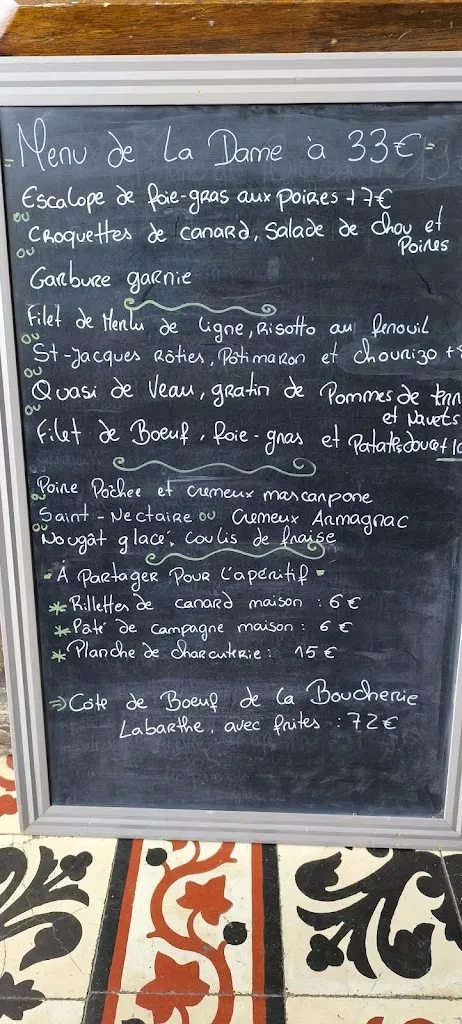 - Menu de La Dame à 33€ -
Escalope de foie-gras aux poires +7€
ou
Croquettes de canard, Salade de chou et
Poires
ou
Garbure garnie
Filet de Merlu de ligne, Risotto au fenouil
ou
St-Jacques Rôties, Potimaron et chourizo +
ou
Quasi de Veau, gratin de Pommes de terr
et Navets
ou
Filet de Boeuf, foie-gras et Patates douce
Poire Pochée et cremeux mascarpone
ou
Saint-Nectaire ou Cremeux Armagnac
ou
Nougât glacé, coulis de fraise
- À Partager Pour l'apéritif -
* Rillettes de canard maison : 6€
* Pâté de campagne maison : 6€
* Planche de charcuterie : 15€
⇒ Côte de Boeuf de la Boucherie
Labarthe, avec frites : 72€